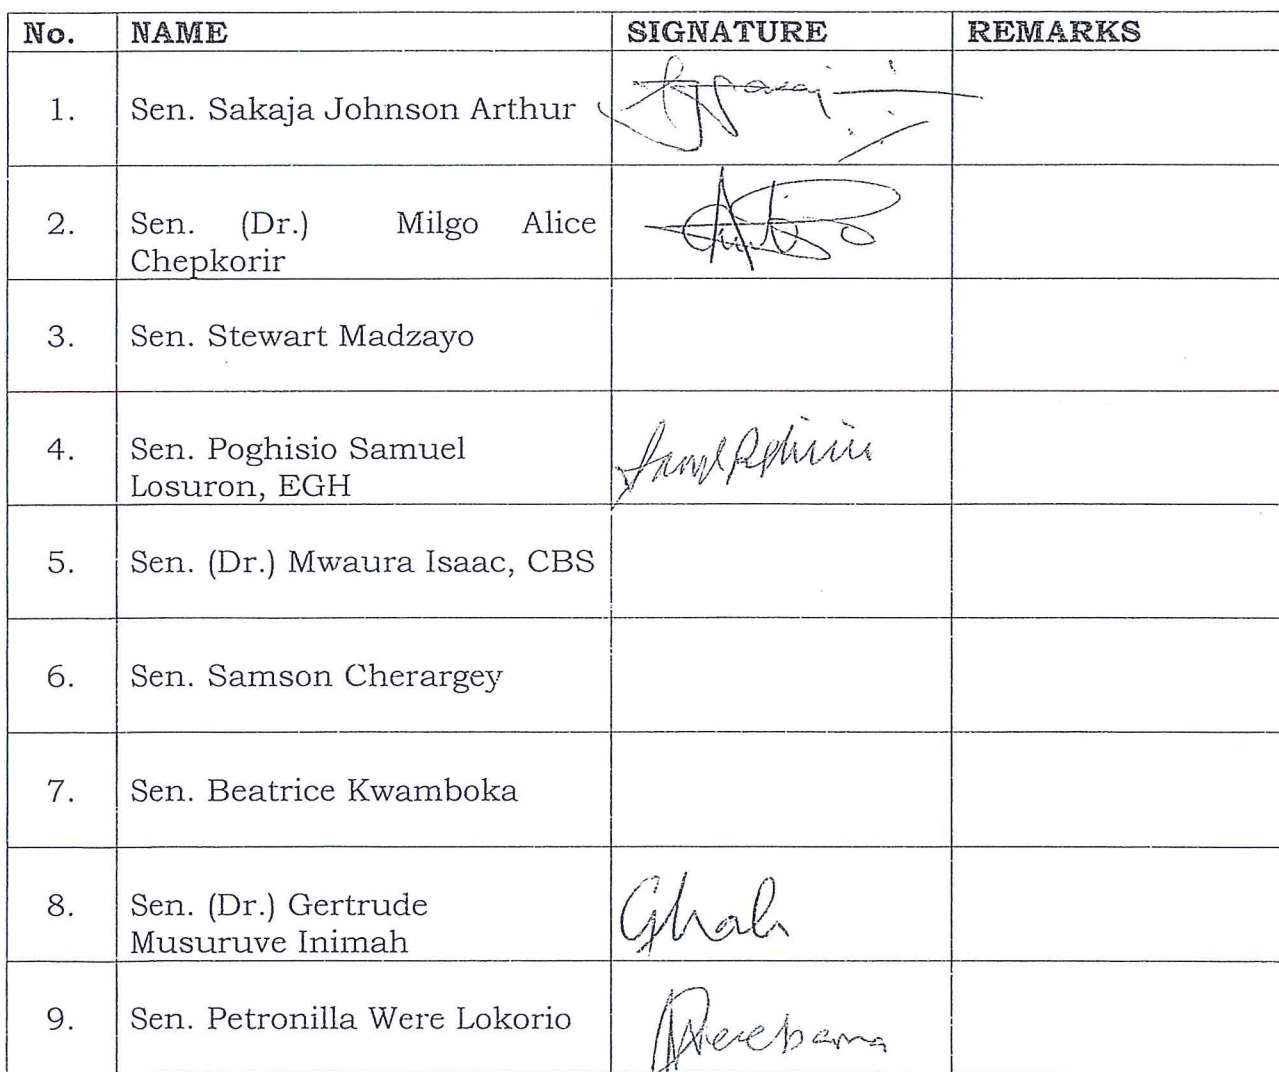 No. NAME SIGNATURE REMARKS
1. Sen. Sakaja Johnson Arthur
2. Sen. (Dr.) Milgo Alice
Chepkorir
3. Sen. Stewart Madzayo
4. Sen. Poghisio Samuel
Losuron, EGH
5. Sen. (Dr.) Mwaura Isaac, CBS
6. Sen. Samson Cherargey
7. Sen. Beatrice Kwamboka
8. Sen. (Dr.) Gertrude
Musuruve Inimah
9. Sen. Petronilla Were Lokorio